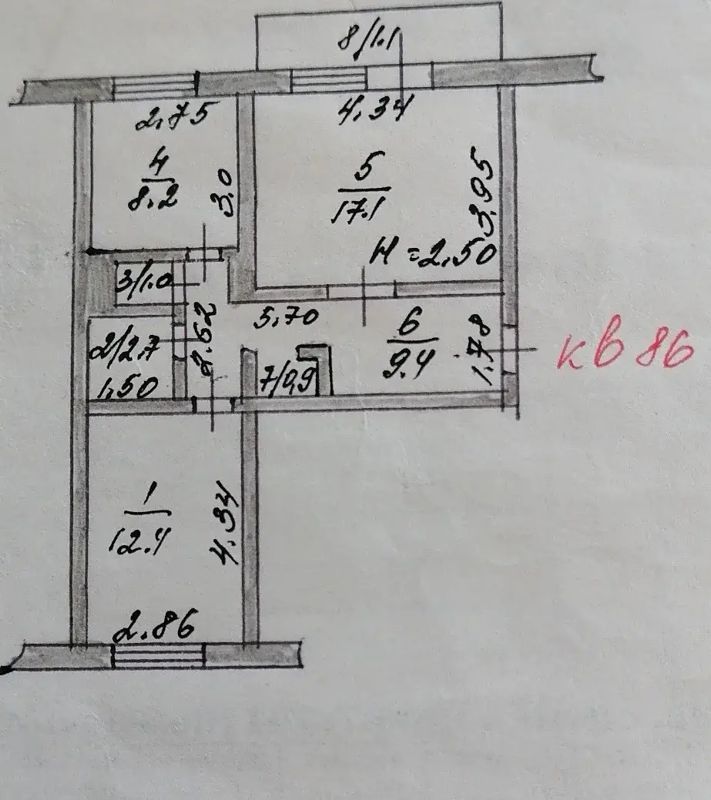 8/1.1
2.75
4.34
4
8.2
3.0
5
17.1
3.95
H=2.50
3/1.0
2.62
5.70
6
9.4
1.78
кв 86
2/2.7
1.50
7/0,9
1
12.4
4.34
2.86